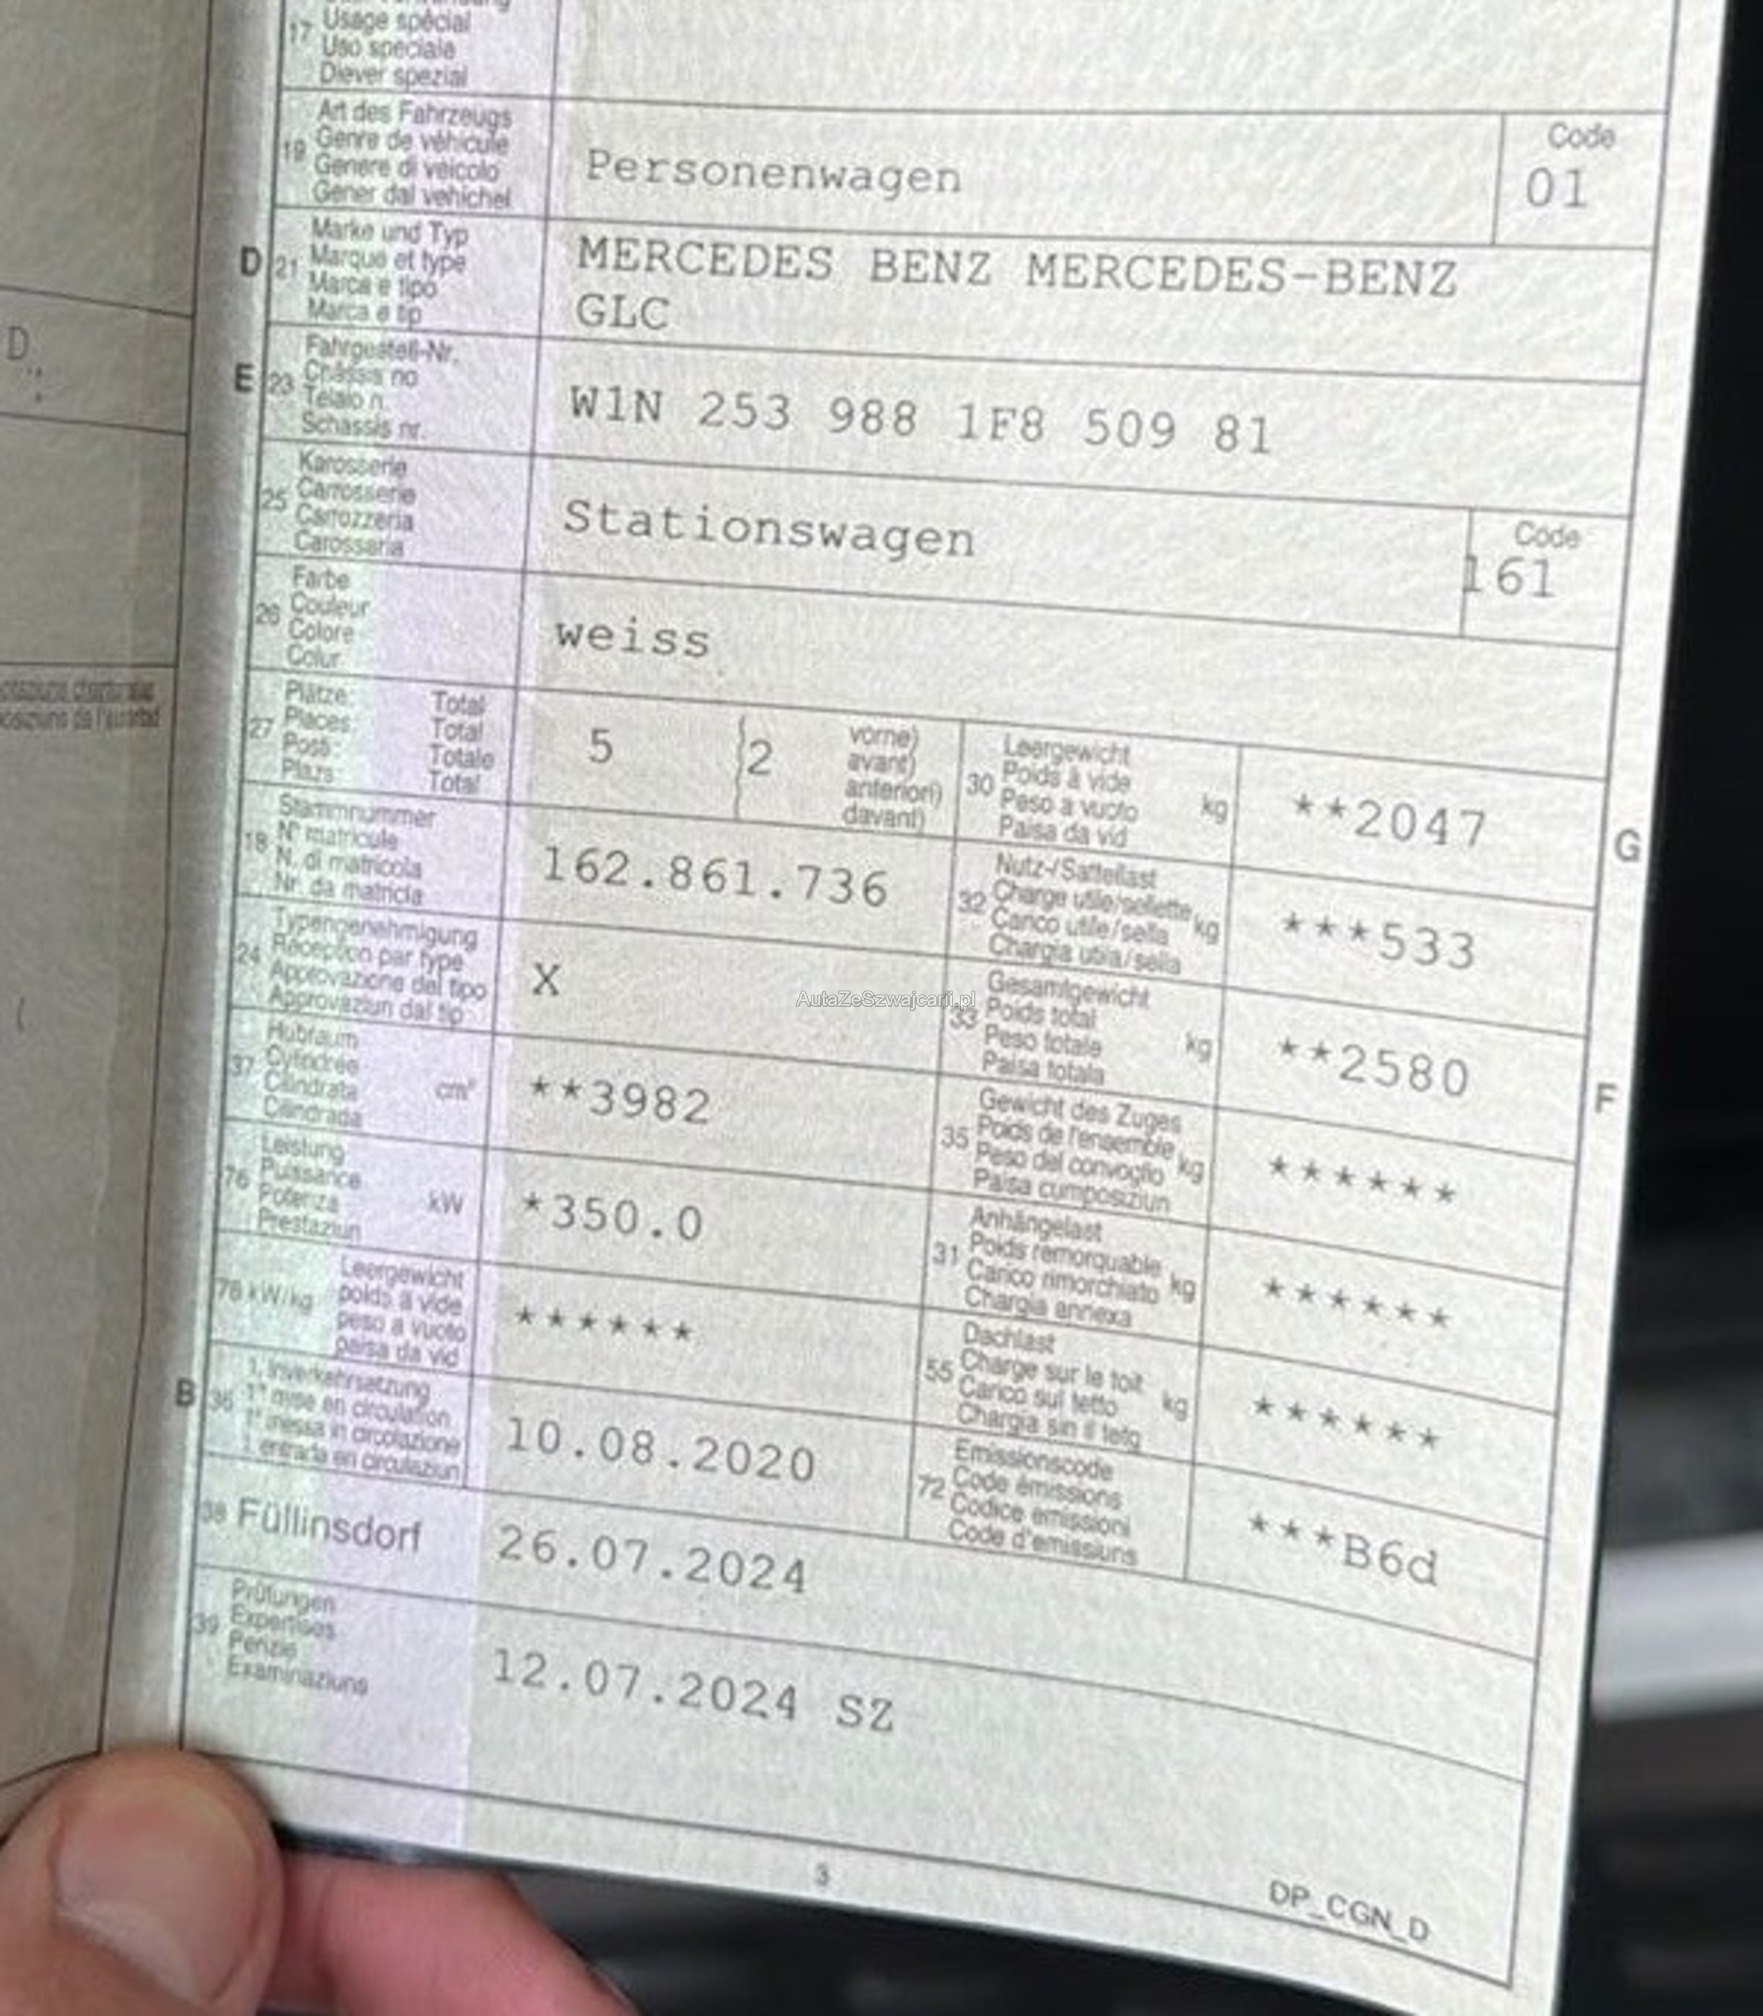 17 Usage spécial
Uso speciale
Diever spezial
Art des Fahrzeugs
19 Genre de véhicule
Genere di veicolo
Gener dal vehichel
Personenwagen
Code
01
Marke und Typ
D 21 Marque et type
Marca e tipo
Marca e tip
MERCEDES BENZ MERCEDES-BENZ
GLC
Fahrgestell-Nr.
E 23 Châssis no
Telaio n.
Schassis nr.
W1N 253 988 1F8 509 81
Karosserie
25 Carrosserie
Carrozzeria
Carossaria
Stationswagen
Code
161
Farbe
26 Couleur
Colore
Colur
weiss
Plätze: Total
27 Places: Total
Posti: Totale
Plazs: Total
5 2
vorne)
avant)
anteriori)
davant)
Leergewicht
30 Poids à vide
Peso a vuoto kg
Paisa da vid
**2047
G
Stammnummer
18 N° matricule
N. di matricola
Nr. da matricla
162.861.736
Nutz-/Sattellast
32 Charge utile/sellette kg
Carico utile/sella
Chargia utila/sella
***533
Typengenehmigung
24 Réception par type
Approvazione del tipo
Approvaziun dal tip
X
Gesamtgewicht
33 Poids total
Peso totale kg
Paisa totala
**2580
F
Hubraum
37 Cylindrée
Cilindrata cm³
Cilindrada
**3982
Gewicht des Zuges
35 Poids de l'ensemble kg
Peso del convoglio
Paisa cumposiziun
******
Leistung
76 Puissance
Potenza kW
Prestaziun
*350.0
Anhängelast
31 Poids remorquable kg
Carico rimorchiato
Chargia annexa
******
Leergewicht
78 kW/kg poids à vide
peso a vuoto
paisa da vid
******
Dachlast
55 Charge sur le toit kg
Carico sul tetto
Chargia sin il tetg
******
B 36 1. Inverkehrsetzung
1re mise en circulation
1a messa in circolazione
1. entrada en circulaziun
10.08.2020
Emissionscode
72 Code émissions
Codice emissioni
Code d'emissiuns
***B6d
38 Füllinsdorf 26.07.2024
Prüfungen
39 Expertises
Perizie
Examinaziuns
12.07.2024 SZ
3
DP_CGN_D
D.
AutaZeSzwajcarii.pl